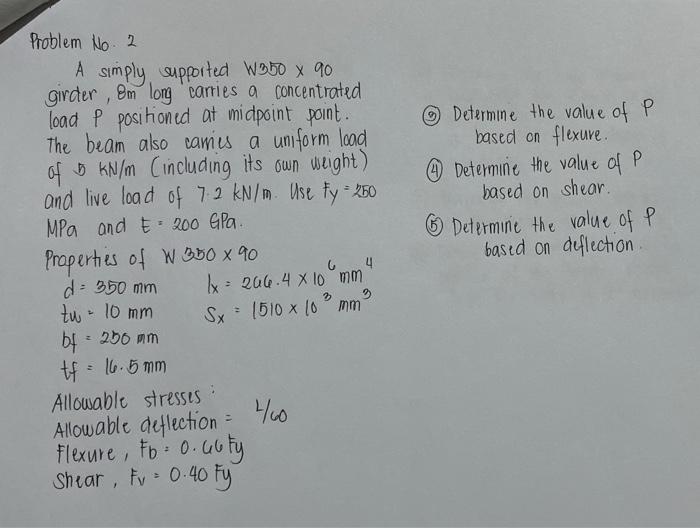 Problem No. 2
A simply supported W350 x 90
girder, 8m long carries a concentrated
load P positioned at midpoint point.
The beam also carries a uniform load
of 5 kN/m (including its own weight)
and live load of 7.2 kN/m. Use Fy = 250
MPa and E = 200 GPa.
Properties of W 350 x 90
d = 350 mm Ix = 266.4 x 10⁶ mm⁴
tw = 10 mm Sx = 1510 x 10³ mm³
bf = 250 mm
tf = 16.5 mm
Allowable stresses :
Allowable deflection = L/60
Flexure, Fb = 0.66 Fy
Shear, Fv = 0.40 Fy
③ Determine the value of P
based on flexure.
④ Determine the value of P
based on shear.
⑤ Determine the value of P
based on deflection.